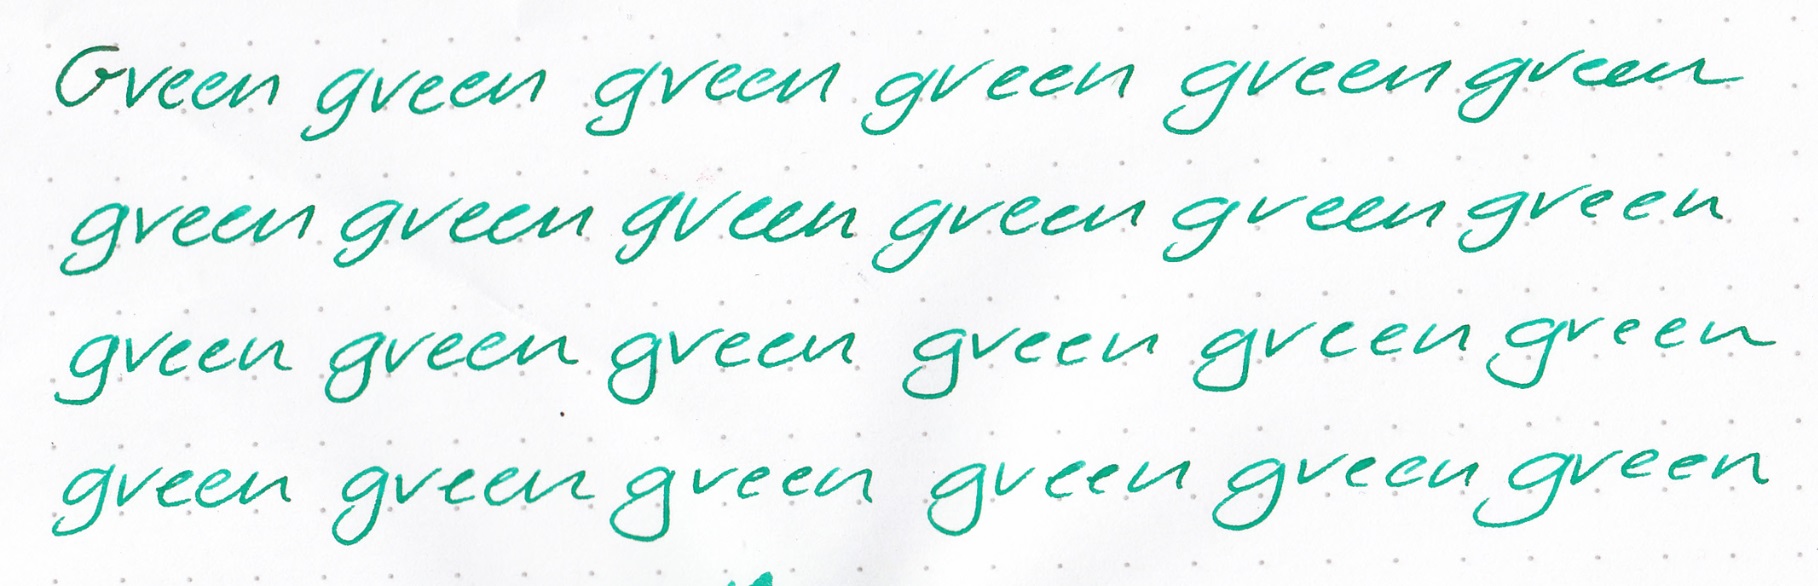 Green green green green green green
green green green green green green
green green green green green green
green green green green green green